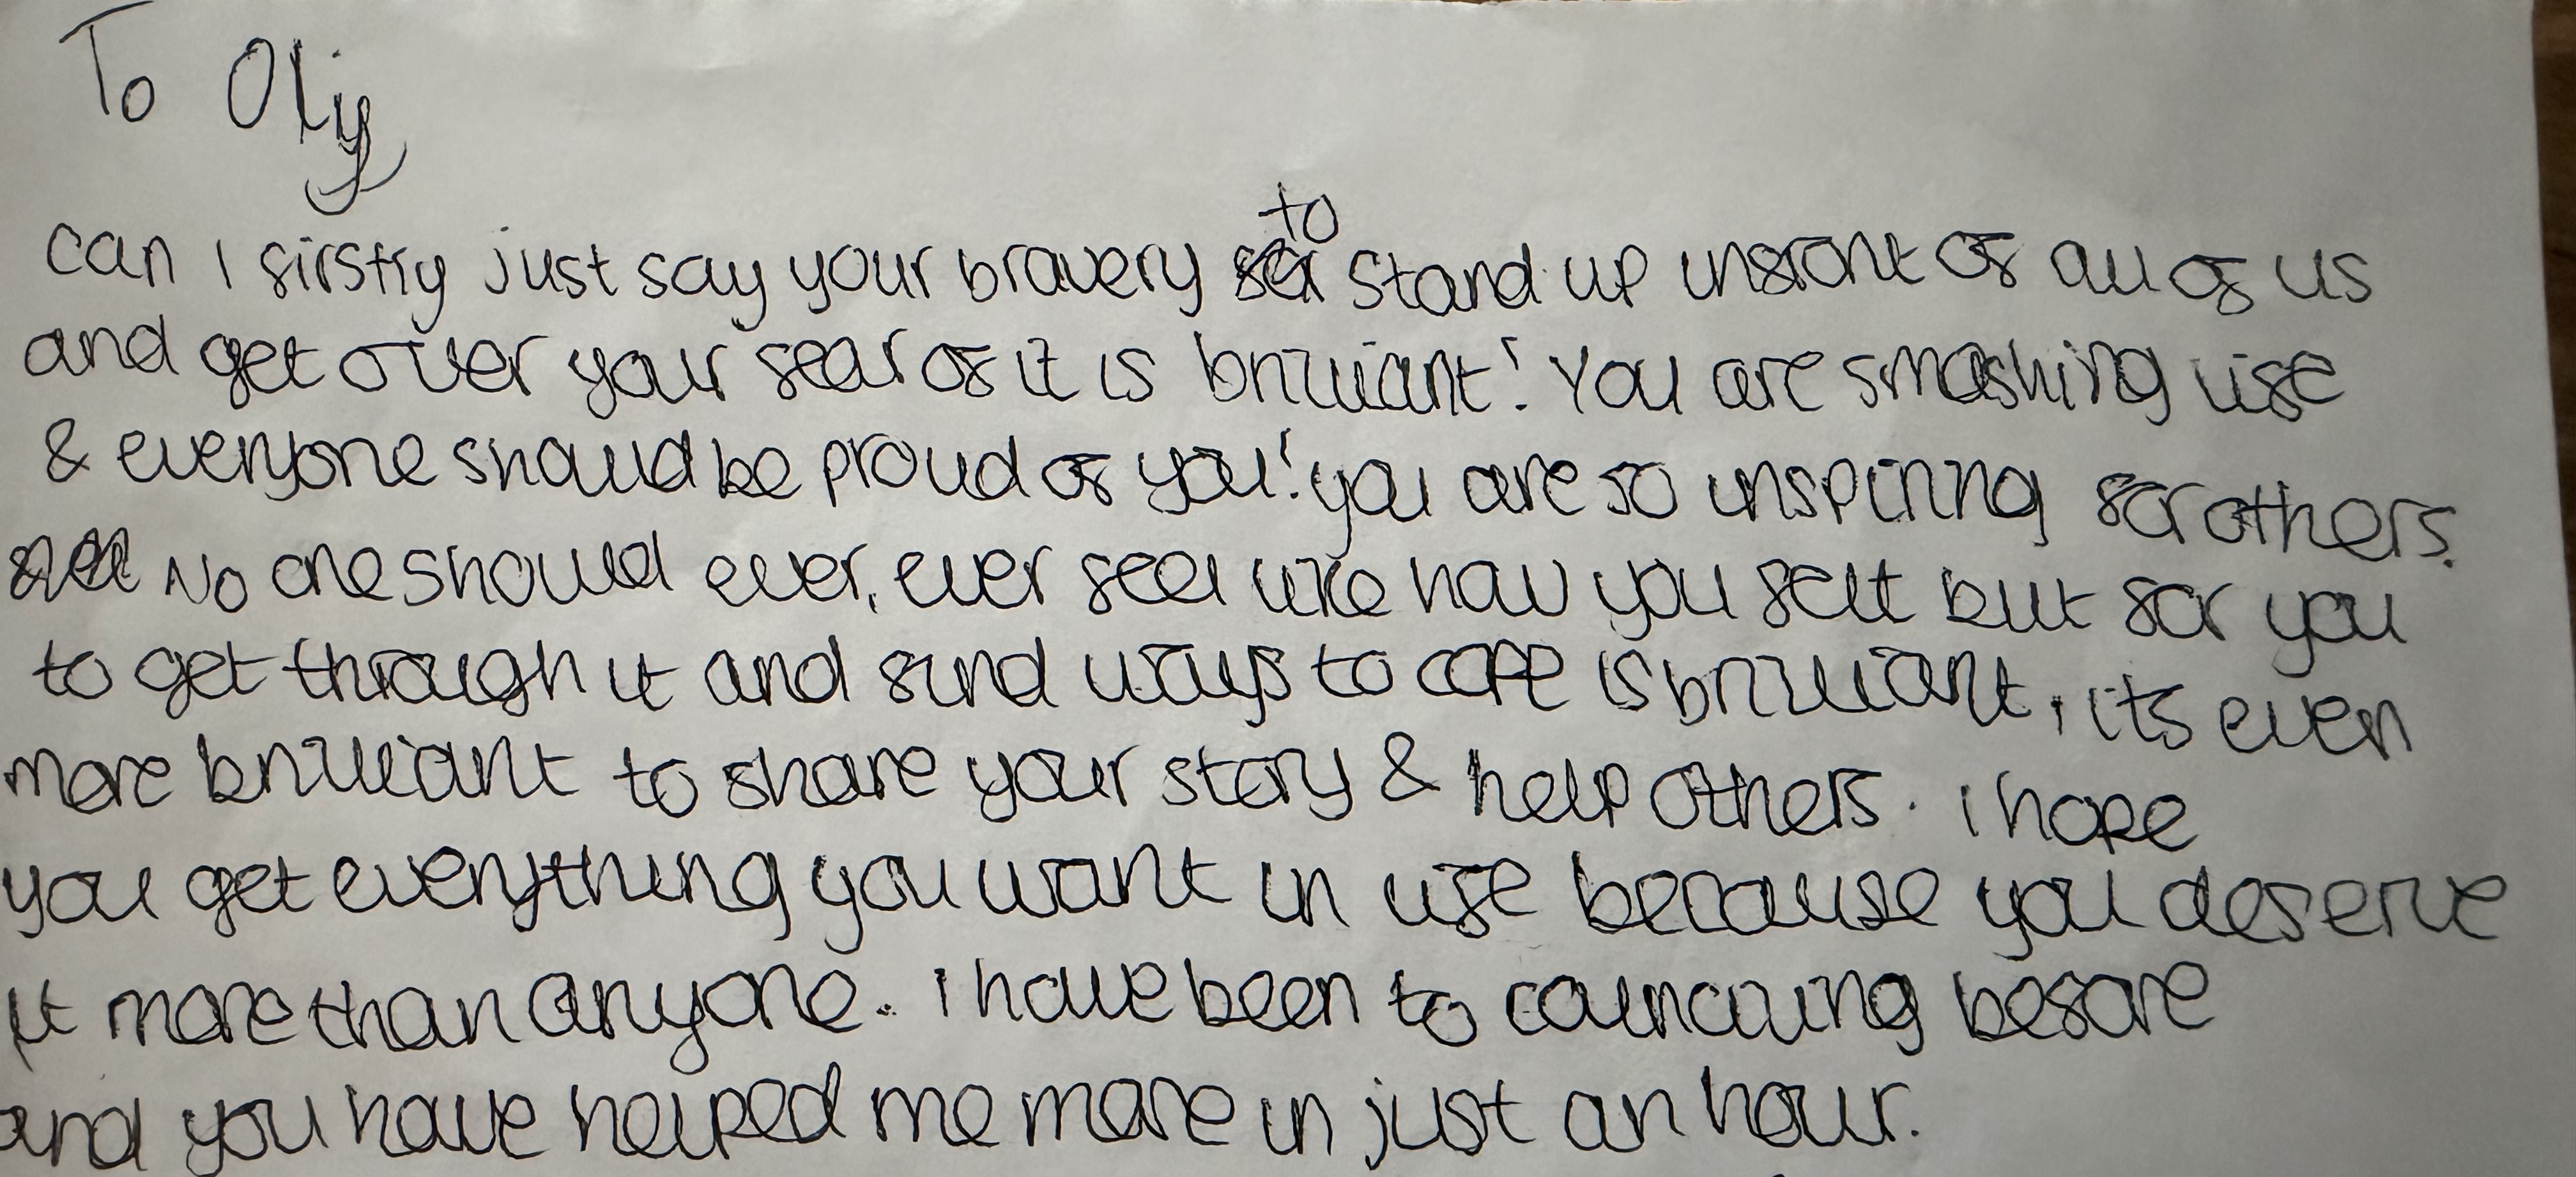 To Oly
can I firstly just say your bravery to stand up infront of all of us
and get over your fear of it is brilliant! You are smashing life
& everyone should be proud of you! you are so inspiring for others.
No one should ever, ever feel like how you felt but for you
to get through it and find ways to cope is brilliant, its even
more brilliant to share your story & help others. i hope
you get everything you want in life because you deserve
it more than anyone. i have been to councilling before
and you have helped me more in just an hour.